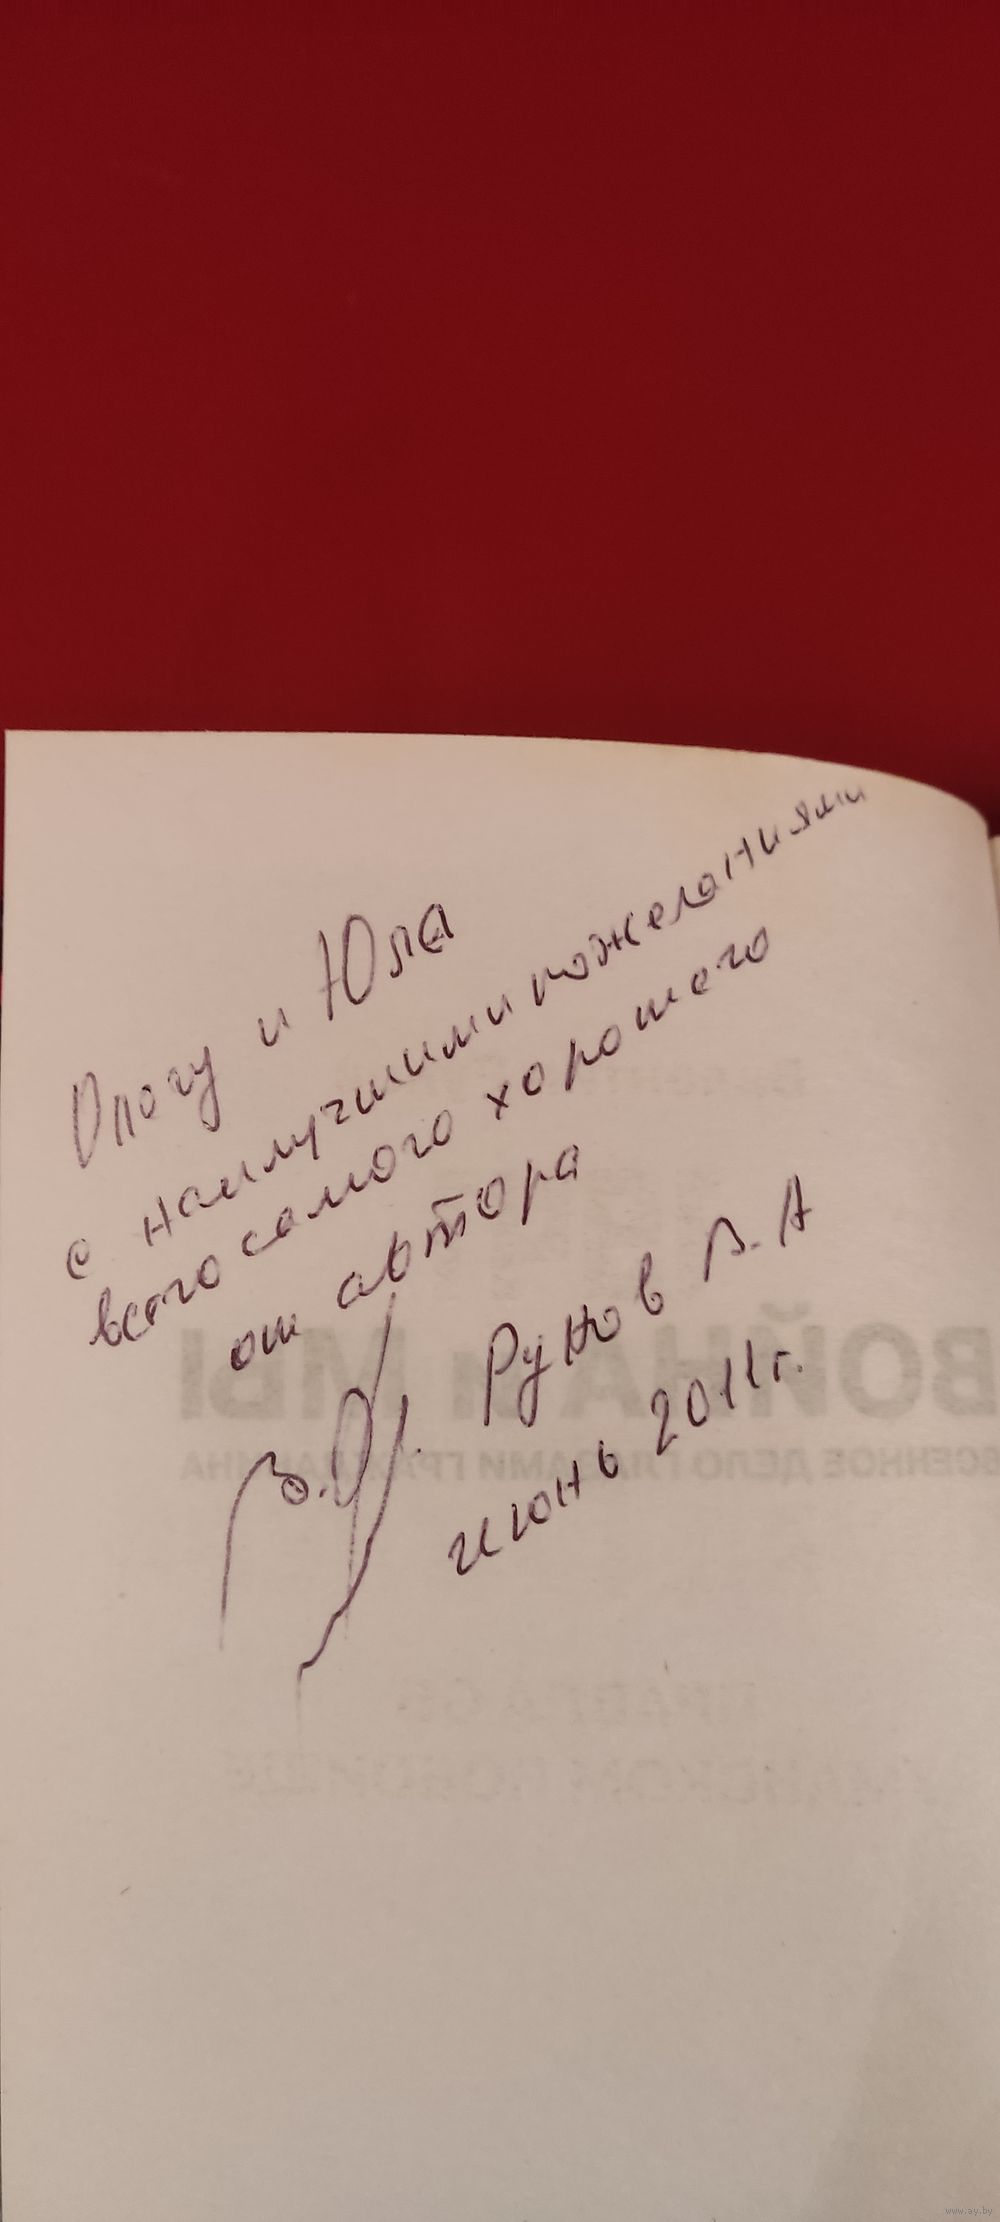 и Юля
с наилучшими пожеланиями
всего самого хорошего
от автора
Рунов В. А
июнь 2011г.
ВОЙНА и МЫ
ВОЕННОЕ ДЕЛО ГЛАЗАМИ ГРАЖДАНИНА
www.ay.by